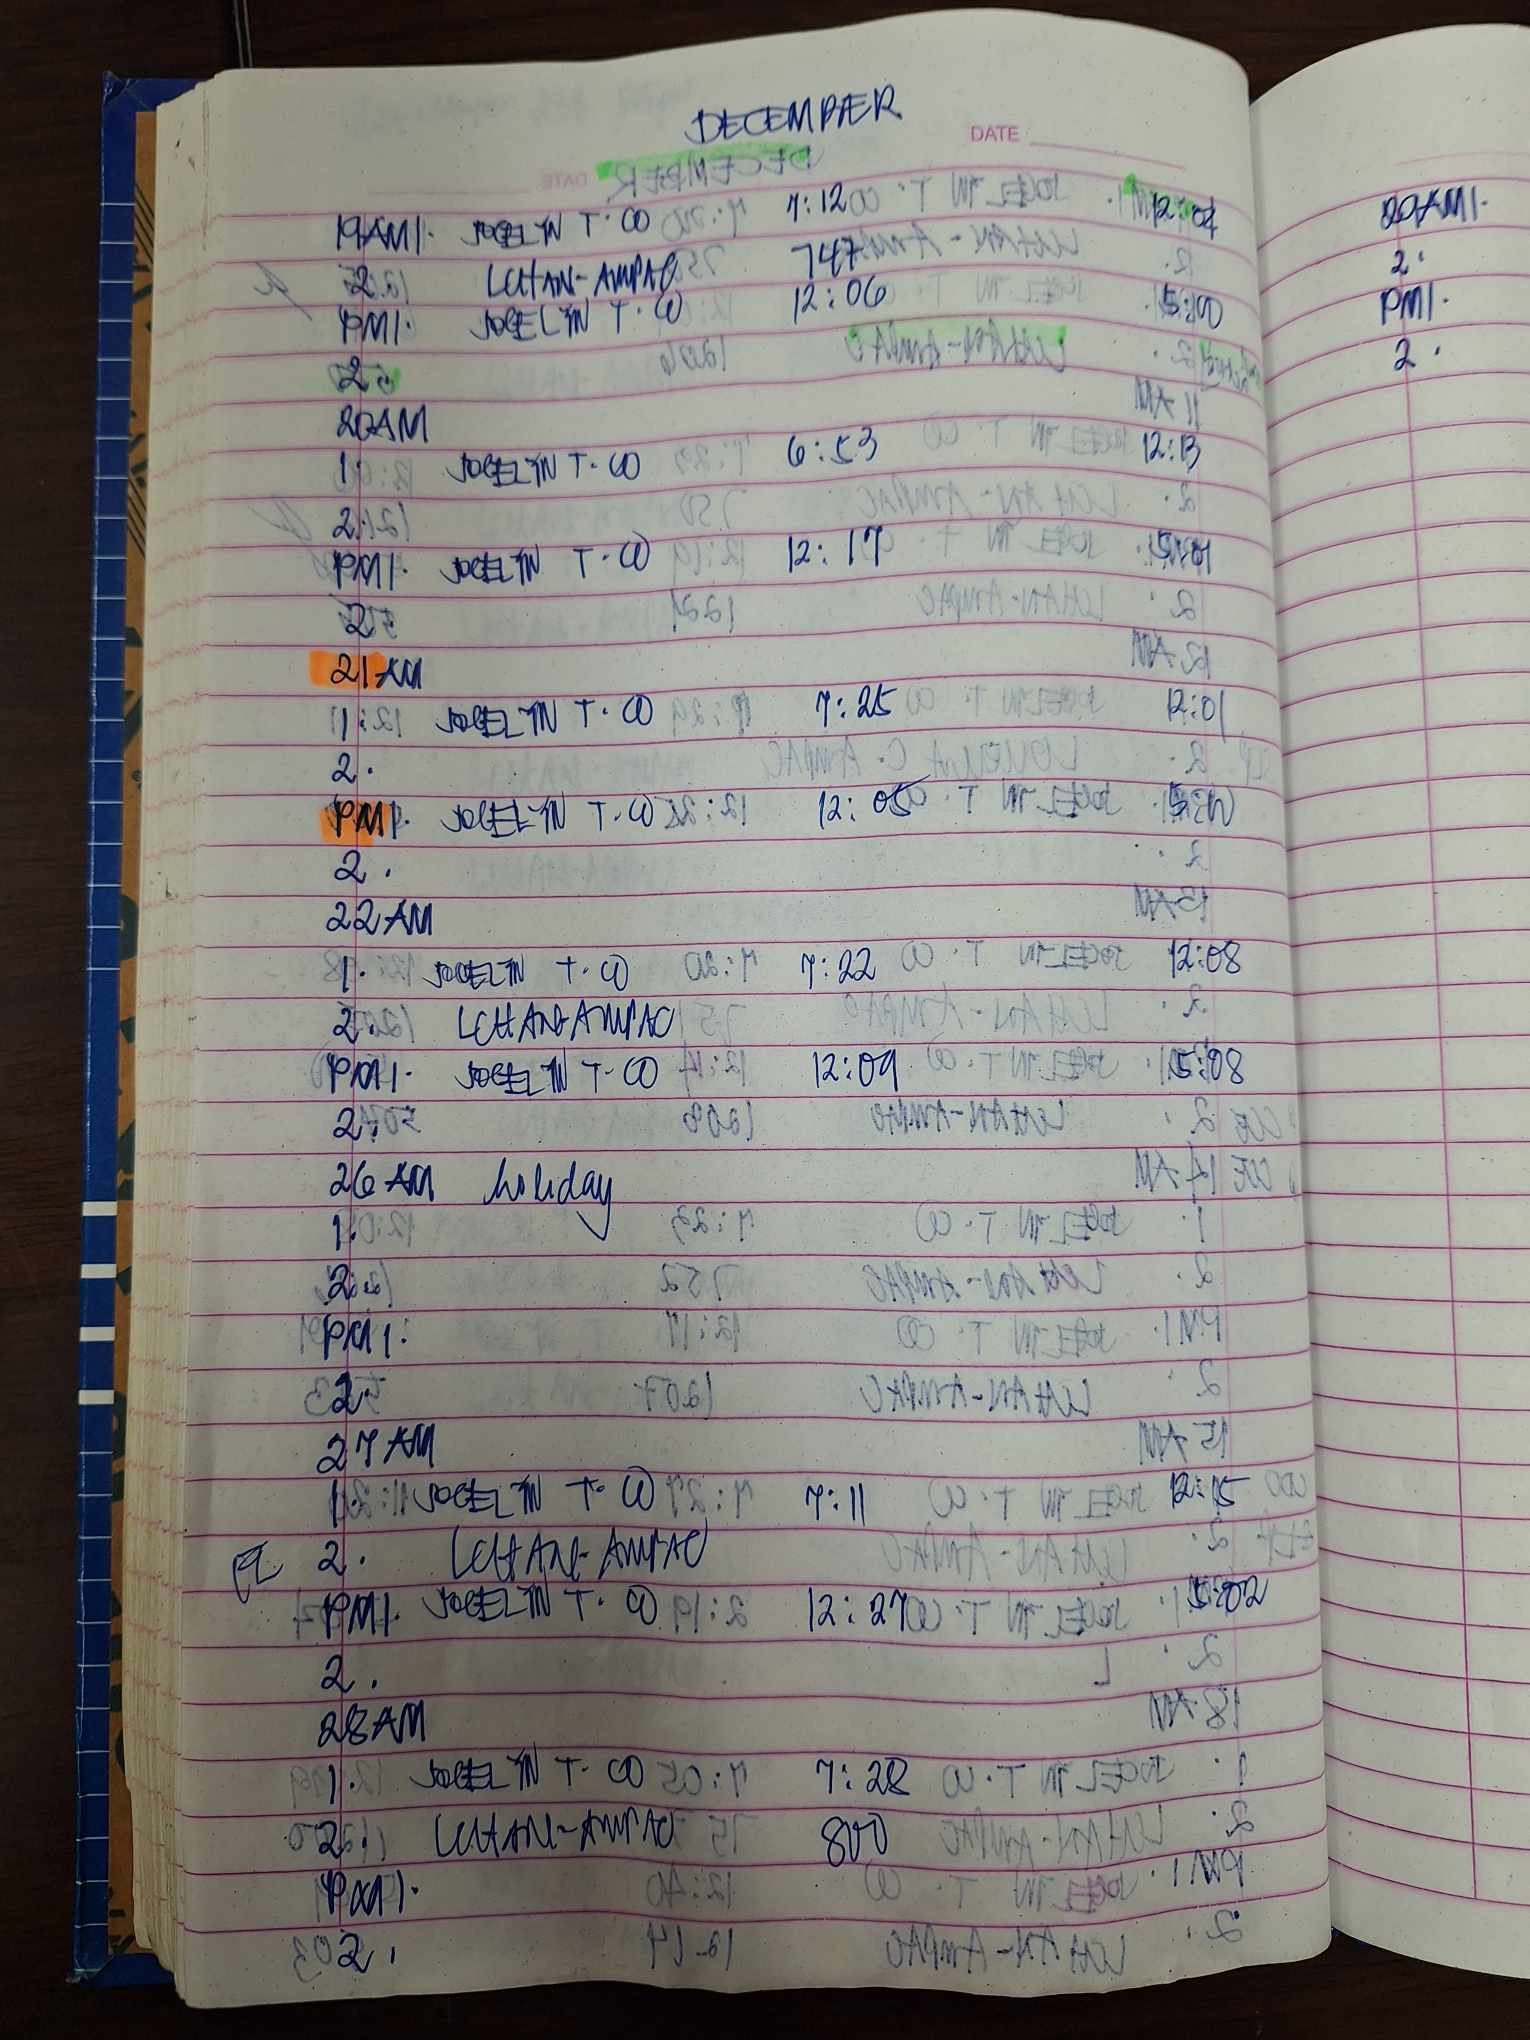 DECEMBER
DATE
19AM1. JOCELYN T. CO 7:12 12:04
2 LCHAN-AMPAC 747
PM1. JOCELYN T. CO 12:06 5:00
2
20AM
1. JOCELYN T. CO 6:53 12:13
2.
PM1. JOCELYN T. CO 12:17
2.
21AM
1. JOCELYN T. CO 7:25 12:01
2.
PM1. JOCELYN T. CO 12:05
2.
22AM
1. JOCELYN T. CO 7:22 12:08
2. LCHAN-AMPAC
PM1. JOCELYN T. CO 12:09 5:08
2.
26AM holiday
1.
2.
PM1.
2.
27AM
1. JOCELYN T. CO 7:11 12:15
2. LCHAN-AMPAC
PM1. JOCELYN T. CO 12:27 5:02
2.
28AM
1. JOCELYN T. CO 7:28
2. LCHAN-AMPAC 800
PM1.
2.
20AM1.
2.
PM1.
2.